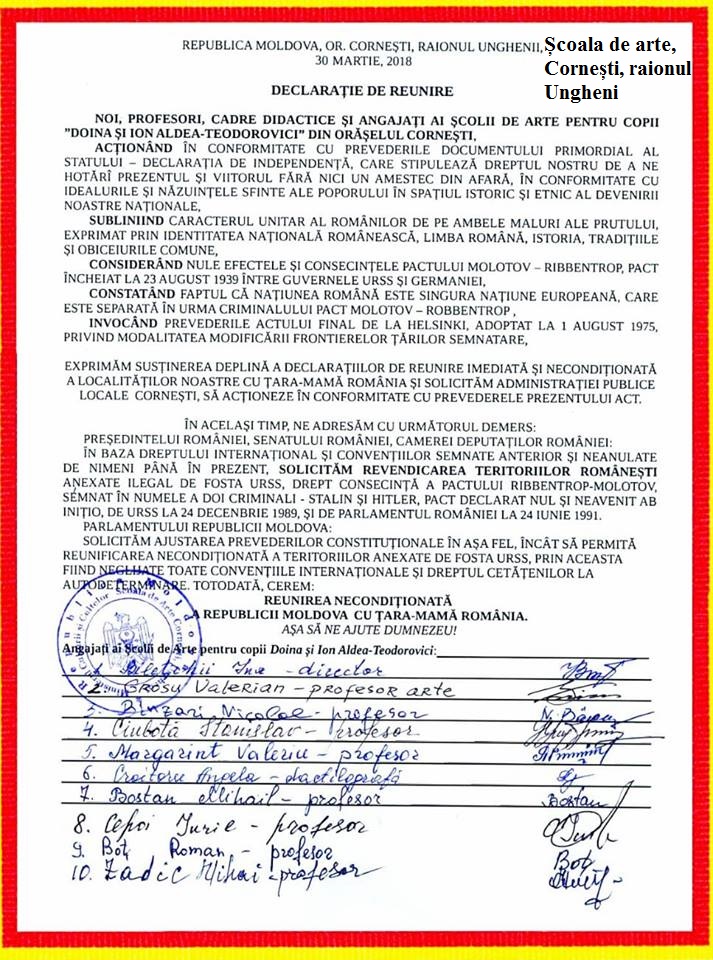 REPUBLICA MOLDOVA, OR. CORNEȘTI, RAIONUL UNGHENII,
Școala de arte,
Cornești, raionul
Ungheni
30 MARTIE, 2018
DECLARAȚIE DE REUNIRE
NOI, PROFESORI, CADRE DIDACTICE ȘI ANGAJAȚI AI ȘCOLII DE ARTE PENTRU COPII
”DOINA ȘI ION ALDEA-TEODOROVICI” DIN ORĂȘELUL CORNEȘTI,
ACȚIONÂND ÎN CONFORMITATE CU PREVEDERILE DOCUMENTULUI PRIMORDIAL AL
STATULUI – DECLARAȚIA DE INDEPENDENȚĂ, CARE STIPULEAZĂ DREPTUL NOSTRU DE A NE
HOTĂRÎ PREZENTUL ȘI VIITORUL FĂRĂ NICI UN AMESTEC DIN AFARĂ, ÎN CONFORMITATE CU
IDEALURILE ȘI NĂZUINȚELE SFINTE ALE POPORULUI ÎN SPAȚIUL ISTORIC ȘI ETNIC AL DEVENIRII
NOASTRE NAȚIONALE,
SUBLINIIND CARACTERUL UNITAR AL ROMÂNILOR DE PE AMBELE MALURI ALE PRUTULUI,
EXPRIMAT PRIN IDENTITATEA NAȚIONALĂ ROMÂNEASCĂ, LIMBA ROMÂNĂ, ISTORIA, TRADIȚIILE
ȘI OBICEIURILE COMUNE,
CONSIDERÂND NULE EFECTELE ȘI CONSECINȚELE PACTULUI MOLOTOV – RIBBENTROP, PACT
ÎNCHEIAT LA 23 AUGUST 1939 ÎNTRE GUVERNELE URSS ȘI GERMANIEI,
CONSTATÂND FAPTUL CĂ NAȚIUNEA ROMÂNĂ ESTE SINGURA NAȚIUNE EUROPEANĂ, CARE
ESTE SEPARATĂ ÎN URMA CRIMINALULUI PACT MOLOTOV – ROBBENTROP ,
INVOCÂND PREVEDERILE ACTULUI FINAL DE LA HELSINKI, ADOPTAT LA 1 AUGUST 1975,
PRIVIND MODALITATEA MODIFICĂRII FRONTIERELOR ȚĂRILOR SEMNATARE,
EXPRIMĂM SUSȚINEREA DEPLINĂ A DECLARAȚIILOR DE REUNIRE IMEDIATĂ ȘI NECONDIȚIONATĂ
A LOCALITĂȚILOR NOASTRE CU ȚARA-MAMĂ ROMÂNIA ȘI SOLICITĂM ADMINISTRAȚIEI PUBLICE
LOCALE CORNEȘTI, SĂ ACȚIONEZE ÎN CONFORMITATE CU PREVEDERILE PREZENTULUI ACT.
ÎN ACELAȘI TIMP, NE ADRESĂM CU URMĂTORUL DEMERS:
PREȘEDINTELUI ROMÂNIEI, SENATULUI ROMÂNIEI, CAMEREI DEPUTAȚILOR ROMÂNIEI:
ÎN BAZA DREPTULUI INTERNAȚIONAL ȘI CONVENȚIILOR SEMNATE ANTERIOR ȘI NEANULATE
DE NIMENI PÂNĂ ÎN PREZENT, SOLICITĂM REVENDICAREA TERITORIILOR ROMÂNEȘTI
ANEXATE ILEGAL DE FOSTA URSS, DREPT CONSECINȚĂ A PACTULUI RIBBENTROP-MOLOTOV,
SEMNAT ÎN NUMELE A DOI CRIMINALI - STALIN ȘI HITLER, PACT DECLARAT NUL ȘI NEAVENIT AB
INIȚIO, DE URSS LA 24 DECENBRIE 1989, ȘI DE PARLAMENTUL ROMÂNIEI LA 24 IUNIE 1991.
PARLAMENTULUI REPUBLICII MOLDOVA:
SOLICITĂM AJUSTAREA PREVEDERILOR CONSTITUȚIONALE ÎN AȘA FEL, ÎNCÂT SĂ PERMITĂ
REUNIFICAREA NECONDIȚIONATĂ A TERITORIILOR ANEXATE DE FOSTA URSS, PRIN ACEASTA
FIIND NEGLIJATE TOATE CONVENȚIILE INTERNAȚIONALE ȘI DREPTUL CETĂȚENILOR LA
AUTODETERMINARE. TOTODATĂ, CEREM:
REUNIREA NECONDIȚIONATĂ
A REPUBLICII MOLDOVA CU ȚARA-MAMĂ ROMÂNIA.
AȘA SĂ NE AJUTE DUMNEZEU!
Angajați ai Școlii de Arte pentru copii Doina și Ion Aldea-Teodorovici:
1. Ina - director
2. Grosu Valerian - profesor arte
3. Nicolae - profesor
4. Ciubotă Stanislav - profesor
5. Margarint Valeriu - profesor
6. Croitoru Angela - dactilografă
7. Bostan Mihail - profesor Bostan
8. Cepoi Iurie - profesor
9. Boț Roman - profesor Boț
10. Zadic Mihai - profesor